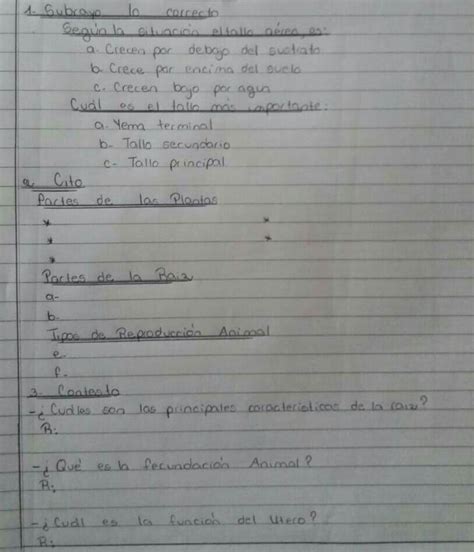 1. Subrayo lo correcto
Según la situación el tallo aéreo, es:
a. Crecen por debajo del sustrato
b. Crece por encima del suelo
c. Crecen bajo por agua
Cuál es el tallo más importante:
a. Yema terminal
b- Tallo secundario
c- Tallo principal
2. Cito
Partes de las Plantas
* *
* *
*
Partes de la Raiz
a-
b.
Tipos de Reproducción Animal
e.
f.
3. Contesto
-¿Cuáles son las principales características de la raiz?
R:
-¿Qué es la fecundación Animal?
R:
-¿Cuál es la función del Utero?
R: